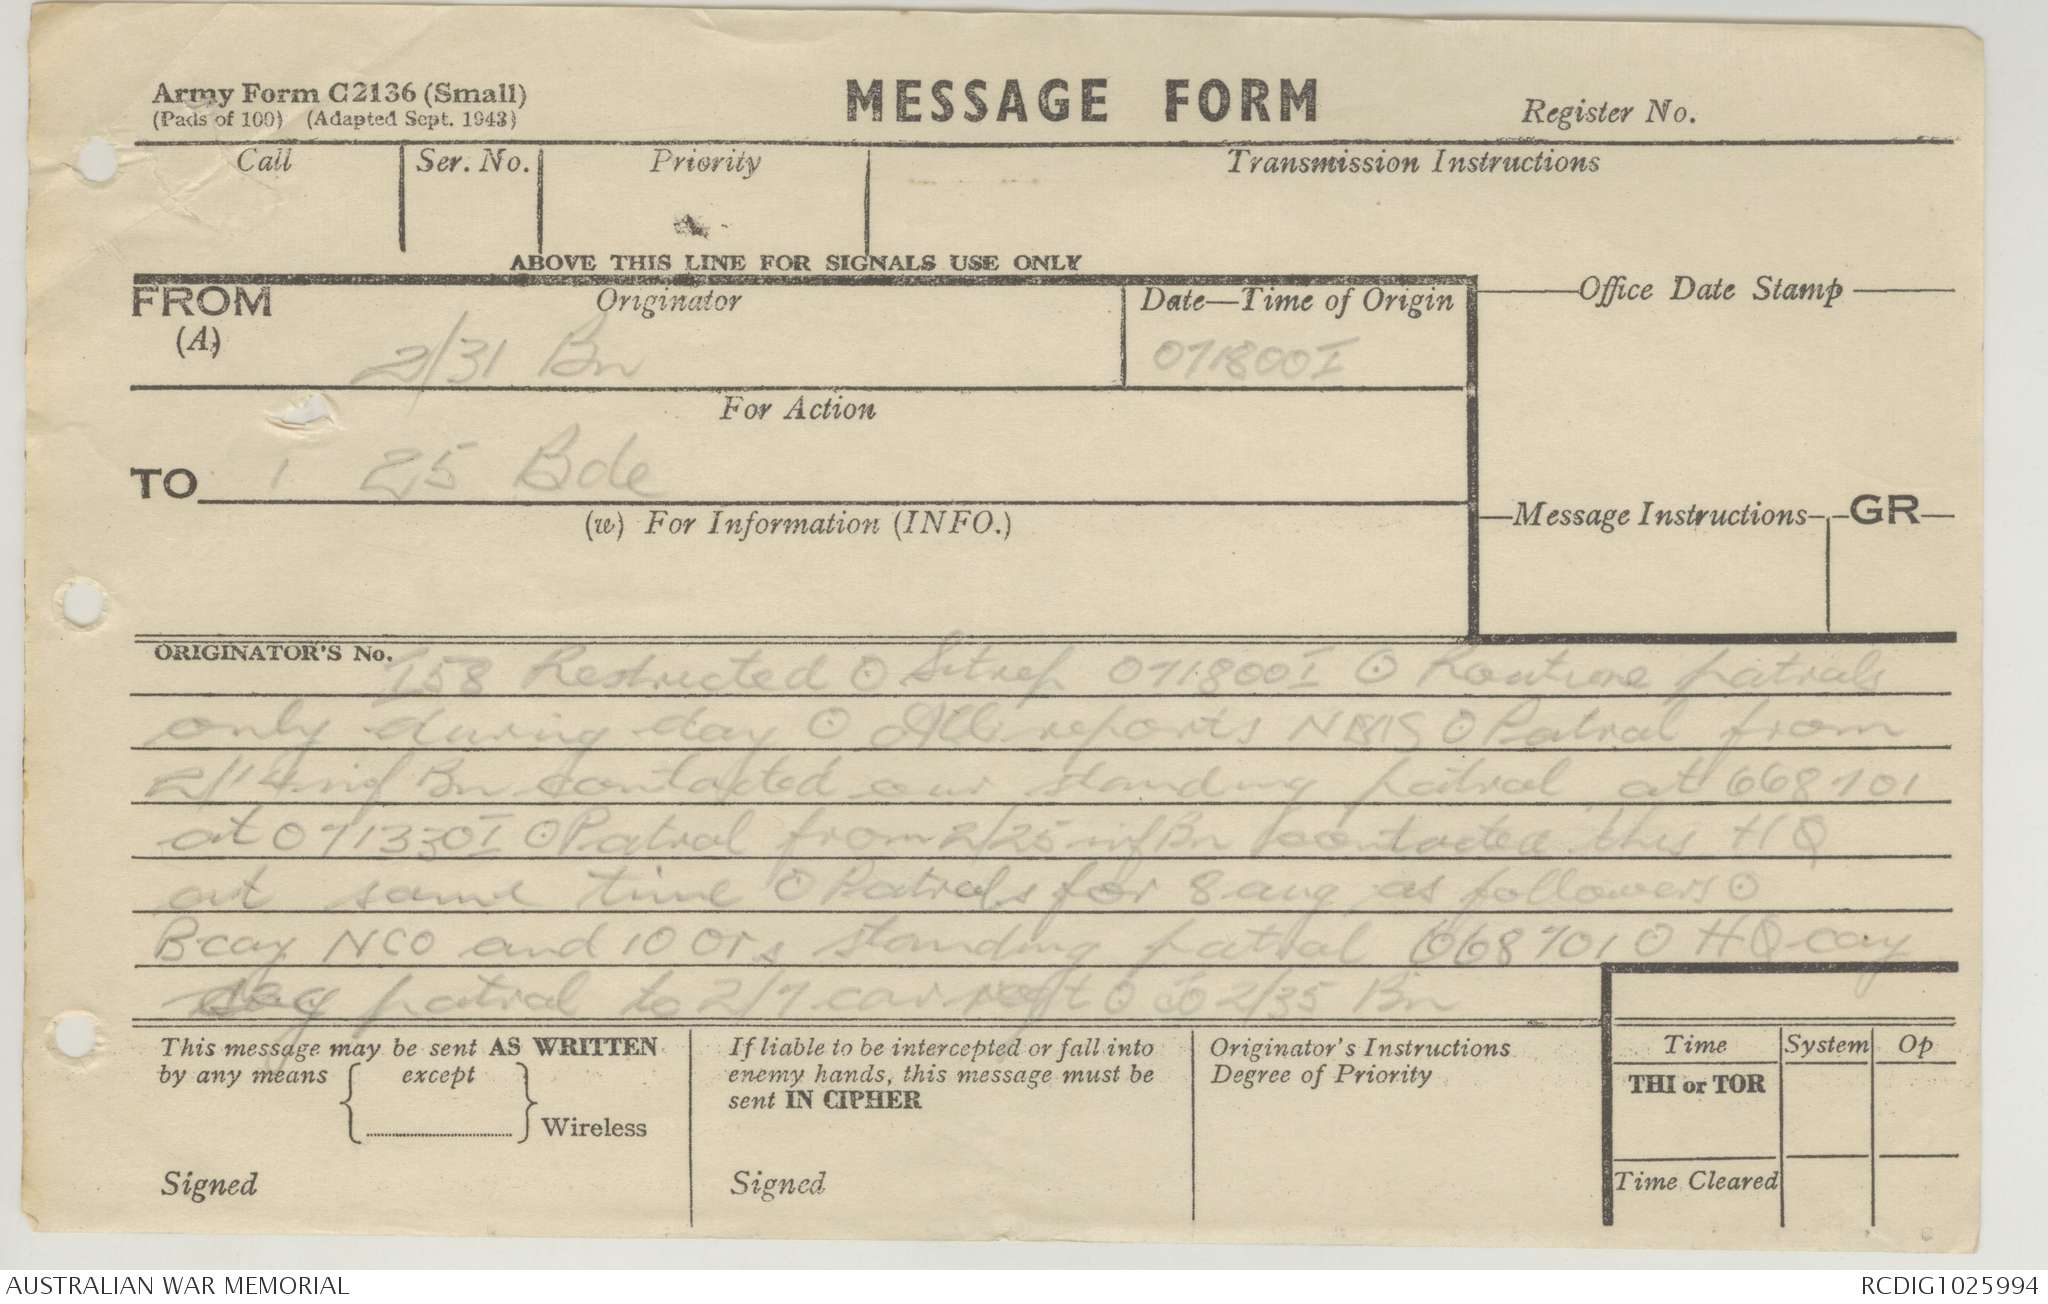 Army Form C2136 (Small)
(Pads of 100) (Adapted Sept. 1943)
MESSAGE FORM
Register No.
Call
Ser. No.
Priority
Transmission Instructions
ABOVE THIS LINE FOR SIGNALS USE ONLY
FROM
(A)
Originator
2/31 Bn
Date—Time of Origin
071800I
Office Date Stamp
For Action
TO
25 Bde
(w) For Information (INFO.)
Message Instructions
GR
ORIGINATOR'S No.
I58 Restricted ⊙ Sitrep 071800I ⊙ Routine patrols
only during day ⊙ All reports ⊙ Patrol from
2/14 inf Bn contacted our standing patrol at 668701
at 071330I ⊙ Patrol from 2/25 inf Bn contacted this HQ
at same time ⊙ Patrols for 8 aug as follows ⊙
B coy NCO and 10 ORs standing patrol 668701 ⊙ HQ coy
patrol to 2/7 cav regt ⊙ to 2/35 Bn
This message may be sent AS WRITTEN
by any means { except } Wireless
Signed
If liable to be intercepted or fall into
enemy hands, this message must be
sent IN CIPHER
Signed
Originator's Instructions
Degree of Priority
Time
System
Op
THI or TOR
Time Cleared
AUSTRALIAN WAR MEMORIAL
RCDIG1025994